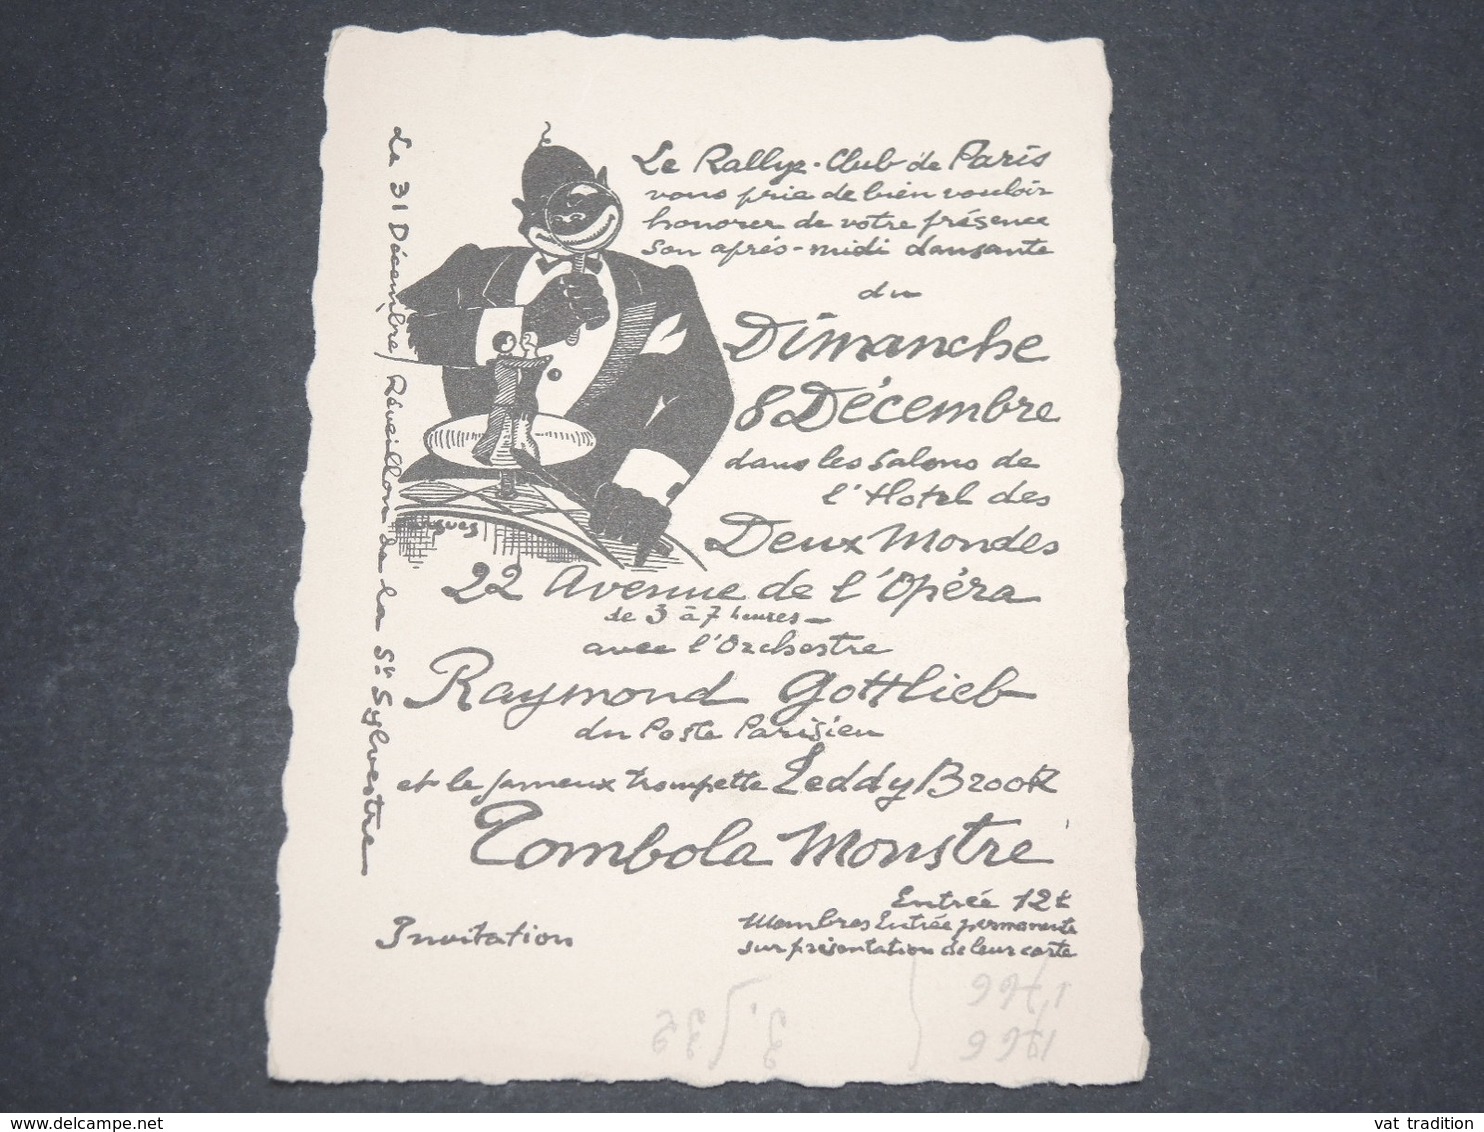 Le Rallye-Club de Paris
vous prie de bien vouloir
honorer de votre présence
son après-midi dansante
du
Dimanche
8 Décembre
dans les salons de
l'Hotel des
Deux Mondes
22 Avenue de l'Opéra
de 3 à 7 heures
avec l'Orchestre
Raymond Gottlieb
du Poste Parisien
et le fameux trompette Leddy Brook
Tombola Monstre
Entrée 12f
Membres Entrée permanente
sur présentation de leur carte
Invitation
Le 31 Décembre/Réveillon de la St Sylvestre
www.delcampe.net
vat tradition